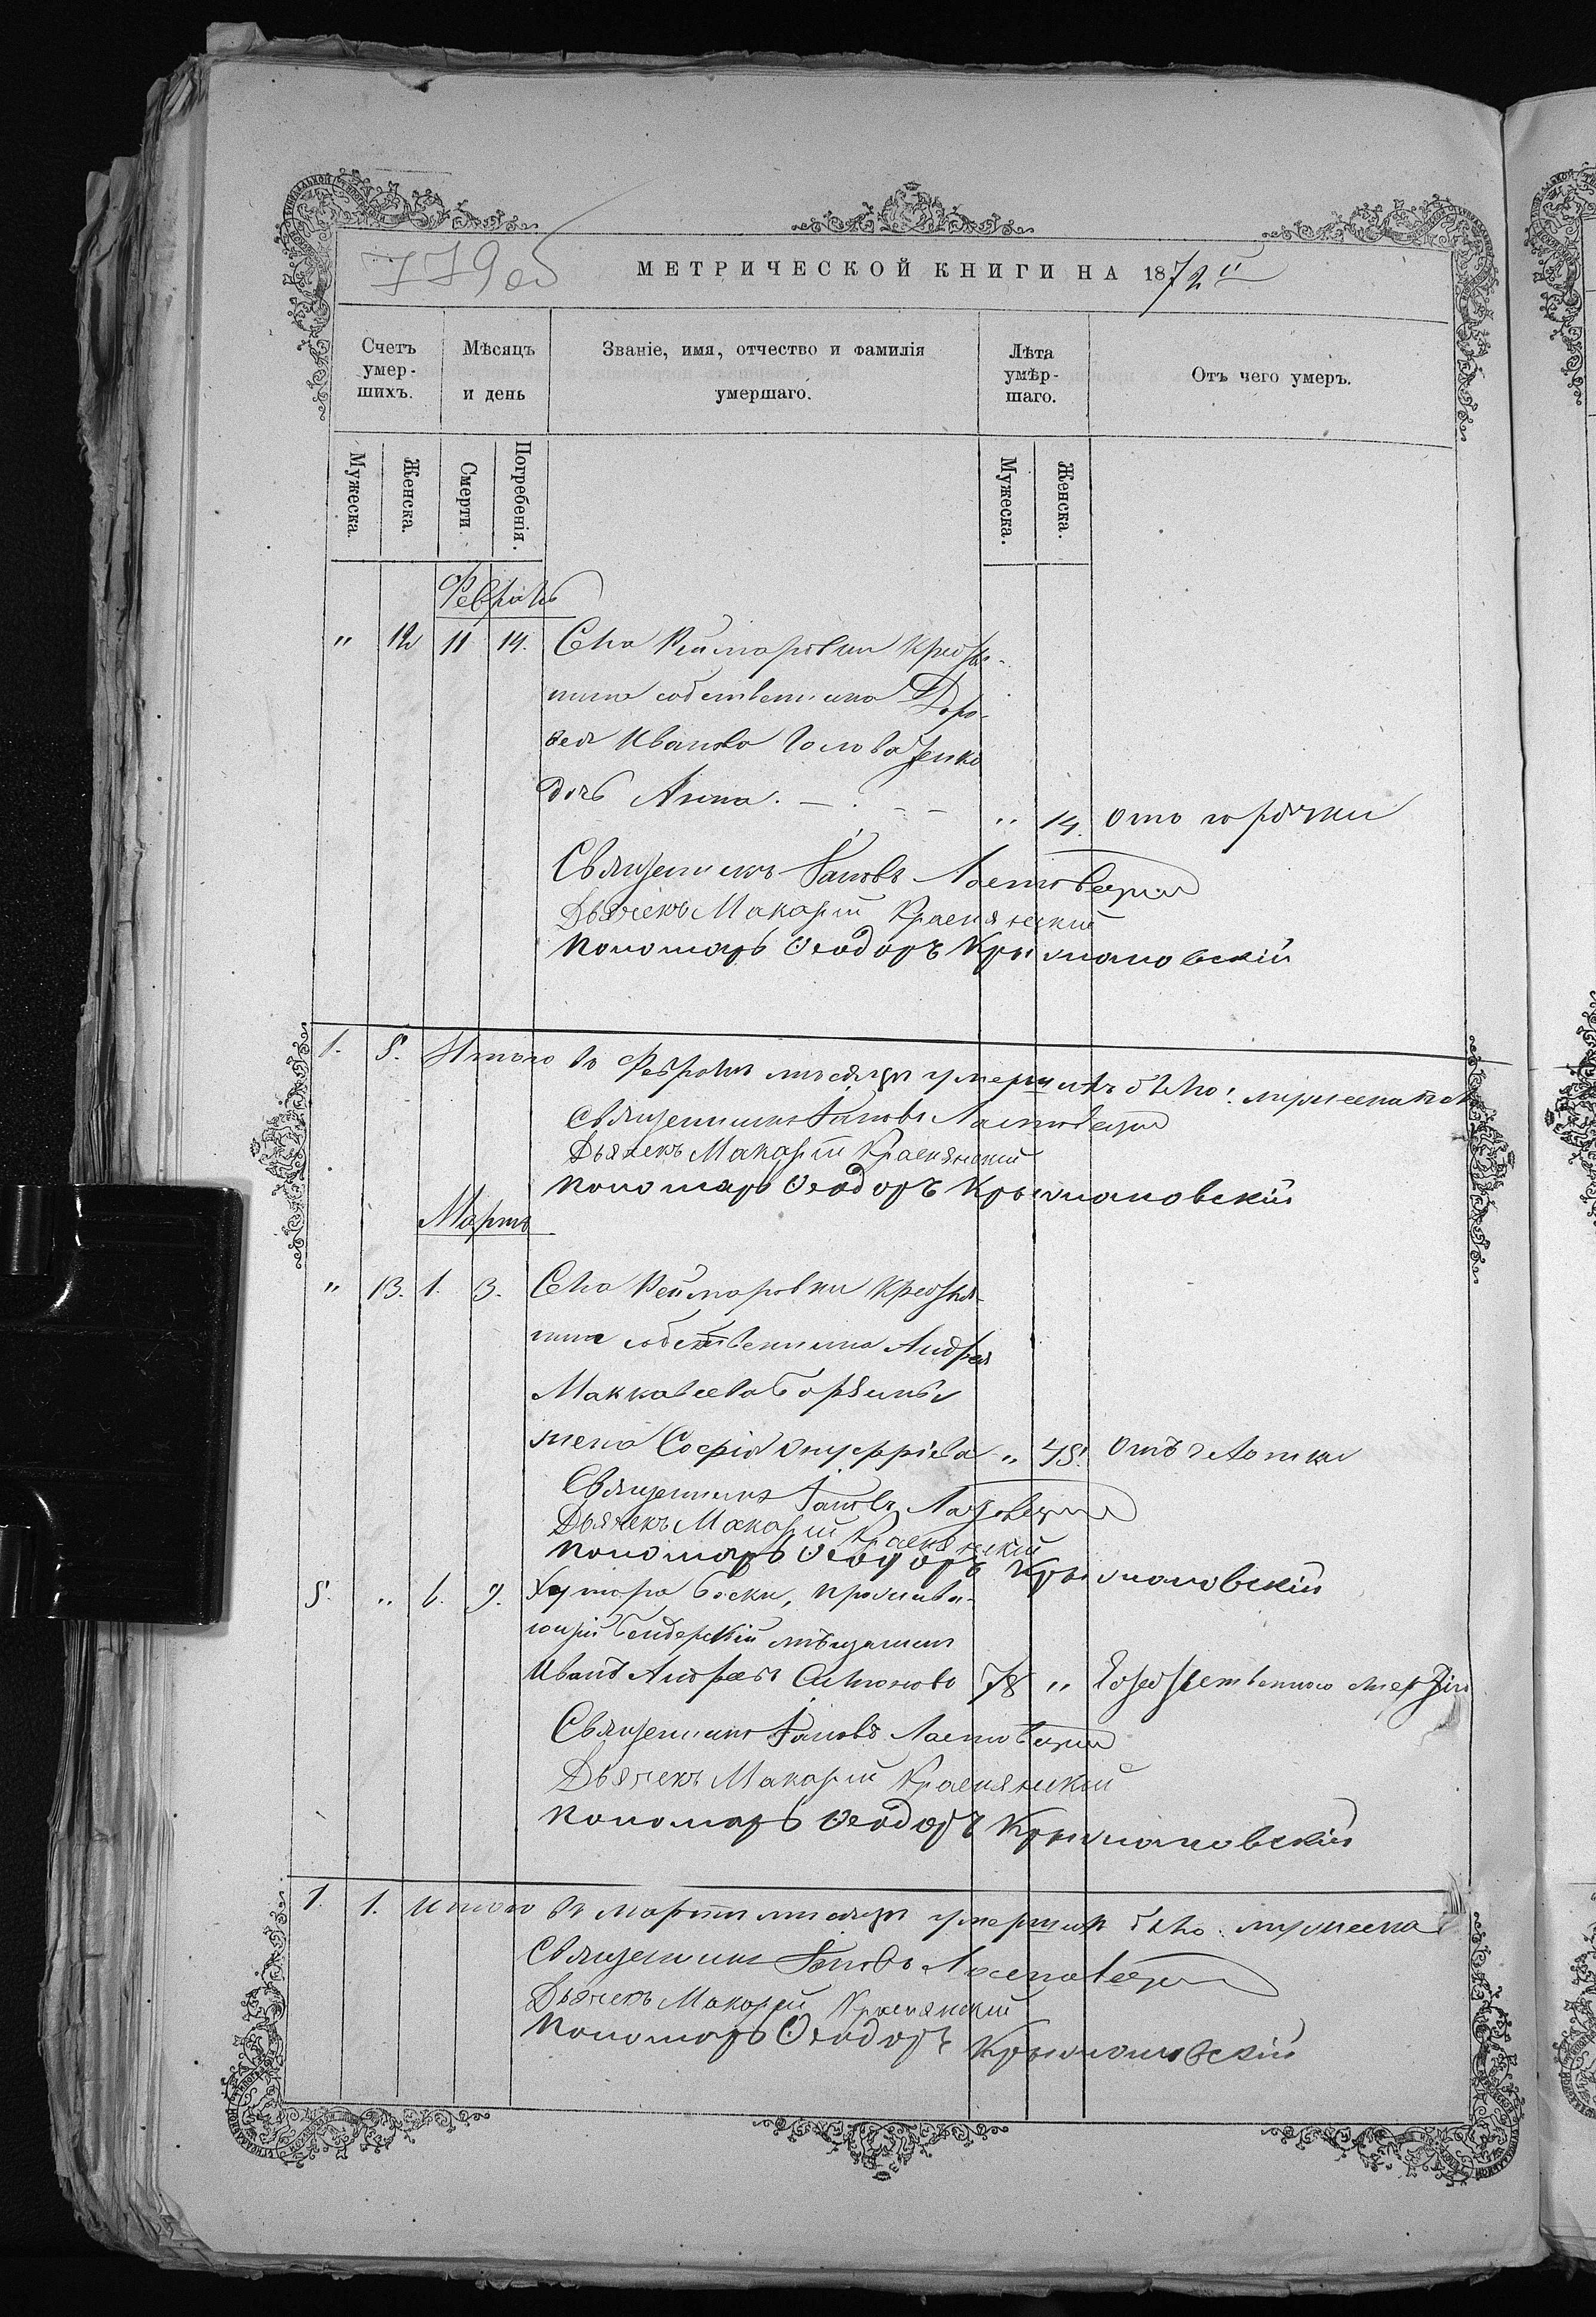 779об
МЕТРИЧЕСКОЙ КНИГИ НА 1872й
Счетъ умер-шихъ.
Мѣсяцъ и день
Званіе, имя, отчество и фамилія умершаго.
Лѣта умѣр-шаго.
Отъ чего умеръ.
Мужеска.
Женска.
Смерти.
Погребенія.
Мужеска.
Женска.
Февраль
" 12 11 14. Села Реймаровки крестья-
нина собственника Доро-
ѳея Иванова Головатенко
дочь Анна. " 14. Отъ горячки
Священникъ Іаковъ Ластовецкій
Дьячекъ Макарій Краснянскій
Пономарь Ѳеодоръ Крыжановскій
1. 5. Итого въ Февралѣ мѣсяцѣ умершихъ было: мужеска
Священникъ Іаковъ Ластовецкій
Дьячекъ Макарій Краснянскій
Пономарь Ѳеодоръ Крыжановскій
Мартъ
" 13. 1. 3. Села Реймаровки крестья-
нина собственника Андрея
Маккавеева
жена Софія Онуфріева " 45. Отъ чахотки
Священникъ Іаковъ Ластовецкій
Дьячекъ Макарій Краснянскій
Пономарь Ѳеодоръ Крыжановскій
5. " 6. 9. Хутора Боски, прожива-
ющій Бендерскій мѣщанинъ
Иванъ Андреевъ 78 "
Священникъ Іаковъ Ластовецкій
Дьячекъ Макарій Краснянскій
Пономарь Ѳеодоръ Крыжановскій
1. 1. Итого въ Мартѣ мѣсяцѣ умершихъ было: мужеска
Священникъ Іаковъ Ластовецкій
Дьячекъ Макарій Краснянскій
Пономарь Ѳеодоръ Крыжановскій